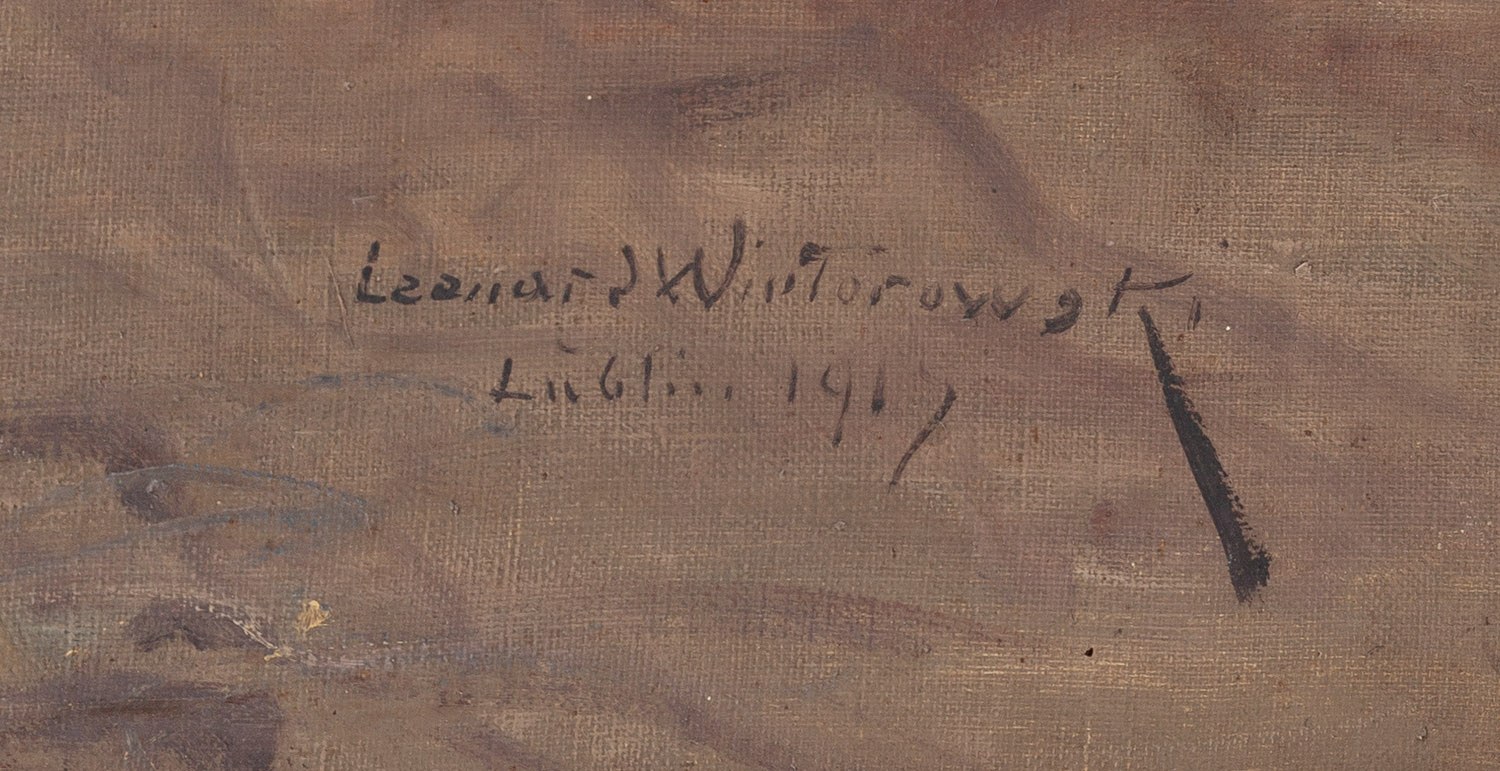 Leonard Wintorowski
Lublin 1917